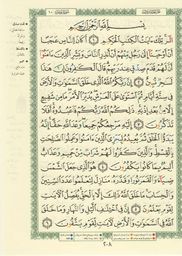 بِسْمِ ٱللَّهِ ٱلرَّحْمَٰنِ ٱلرَّحِيمِ
الٓر تِلْكَ ءَايَٰتُ ٱلْكِتَٰبِ ٱلْحَكِيمِ ١ أَكَانَ لِلنَّاسِ عَجَبًا
أَنْ أَوْحَيْنَآ إِلَىٰ رَجُلٍ مِّنْهُمْ أَنْ أَنذِرِ ٱلنَّاسَ وَبَشِّرِ ٱلَّذِينَ ءَامَنُوٓا۟
أَنَّ لَهُمْ قَدَمَ صِدْقٍ عِندَ رَبِّهِمْ قَالَ ٱلْكَٰفِرُونَ إِنَّ هَٰذَا
لَسَٰحِرٌ مُّبِينٌ ٢ إِنَّ رَبَّكُمُ ٱللَّهُ ٱلَّذِى خَلَقَ ٱلسَّمَٰوَٰتِ وَٱلْأَرْضَ
فِى سِتَّةِ أَيَّامٍ ثُمَّ ٱسْتَوَىٰ عَلَى ٱلْعَرْشِ يُدَبِّرُ ٱلْأَمْرَ مَا مِن شَفِيعٍ
إِلَّا مِنۢ بَعْدِ إِذْنِهِۦ ذَٰلِكُمُ ٱللَّهُ رَبُّكُمْ فَٱعْبُدُوهُ أَفَلَا
تَذَكَّرُونَ ٣ إِلَيْهِ مَرْجِعُكُمْ جَمِيعًا وَعْدَ ٱللَّهِ حَقًّا إِنَّهُۥ
يَبْدَؤُا۟ ٱلْخَلْقَ ثُمَّ يُعِيدُهُۥ لِيَجْزِىَ ٱلَّذِينَ ءَامَنُوا۟ وَعَمِلُوا۟
ٱلصَّٰلِحَٰتِ بِٱلْقِسْطِ وَٱلَّذِينَ كَفَرُوا۟ لَهُمْ شَرَابٌ مِّنْ حَمِيمٍ وَعَذَابٌ
أَلِيمٌۢ بِمَا كَانُوا۟ يَكْفُرُونَ ٤ هُوَ ٱلَّذِى جَعَلَ ٱلشَّمْسَ
ضِيَآءً وَٱلْقَمَرَ نُورًا وَقَدَّرَهُۥ مَنَازِلَ لِتَعْلَمُوا۟ عَدَدَ ٱلسِّنِينَ
وَٱلْحِسَابَ مَا خَلَقَ ٱللَّهُ ذَٰلِكَ إِلَّا بِٱلْحَقِّ يُفَصِّلُ ٱلْءَايَٰتِ
لِقَوْمٍ يَعْلَمُونَ ٥ إِنَّ فِى ٱخْتِلَٰفِ ٱلَّيْلِ وَٱلنَّهَارِ وَمَا خَلَقَ
ٱللَّهُ فِى ٱلسَّمَٰوَٰتِ وَٱلْأَرْضِ لَءَايَٰتٍ لِّقَوْمٍ يَتَّقُونَ ٦
٢٠٨